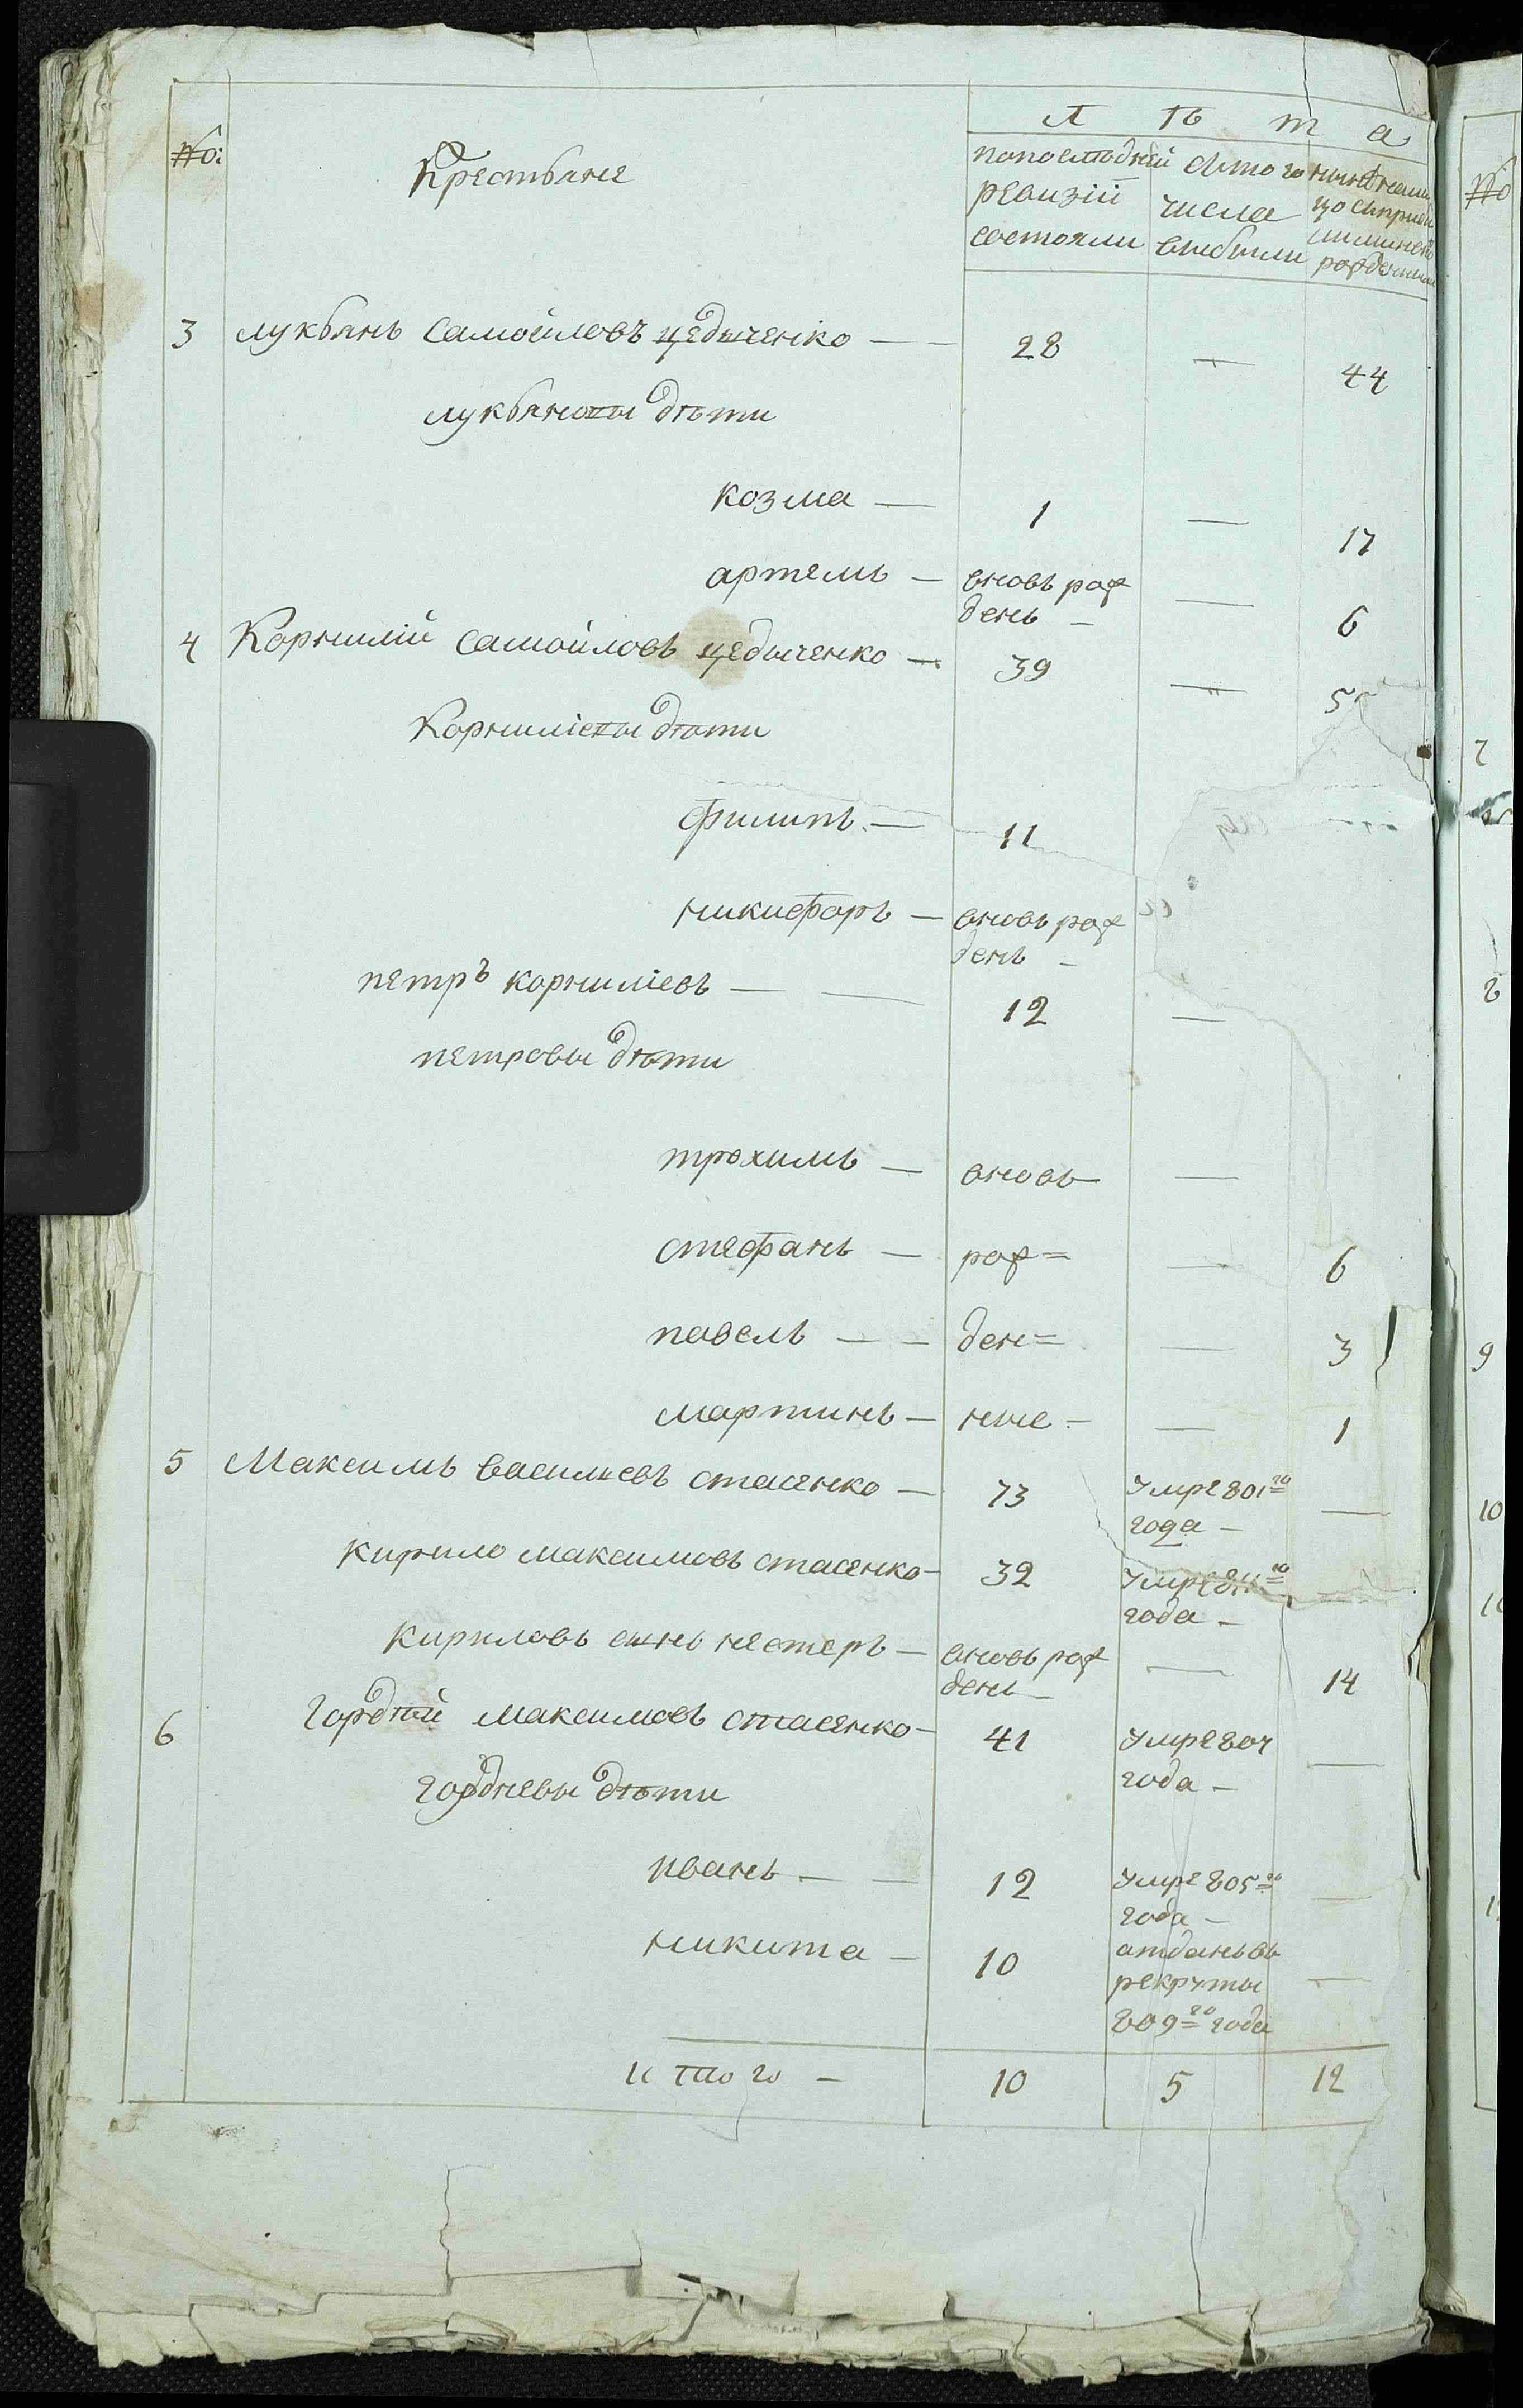 №:
Крестьяне
Л ѣ т а
попоследней ревизїи состояли
ис того числа выбыли
3 лукьянъ Самойловъ цедыченко — — 28 — 44
лукьяновы дѣти
козма — 1 — 17
артемъ — вновь рож
денъ — — 6
4 Корнилїй Самойловъ цедыченко — 39 — 55
Корнилїевы дѣти
филипъ — 11
никифоръ — вновь рож
денъ —
петръ корнилїевъ — — 12 —
петровы дѣти
трохимъ — вновь —
стефанъ — рож= — 6
павелъ — — ден= — 3
мартинъ — ные — — 1
5 Максимъ василиевъ стасенко — 73 умре 801го —
года —
кирило максимовъ стасенко — 32 умре 811го —
года —
кириловъ сынъ нестеръ — вновь рож — 14
денъ —
6 гордѣй максимовъ стасенко — 41 умре 804 —
года —
гордиевы дѣти
иванъ — — 12 умре 805го —
года —
никита — 10 отданъ въ
рекруты —
809го года
итого — 10 5 12
№
7
8
9
10